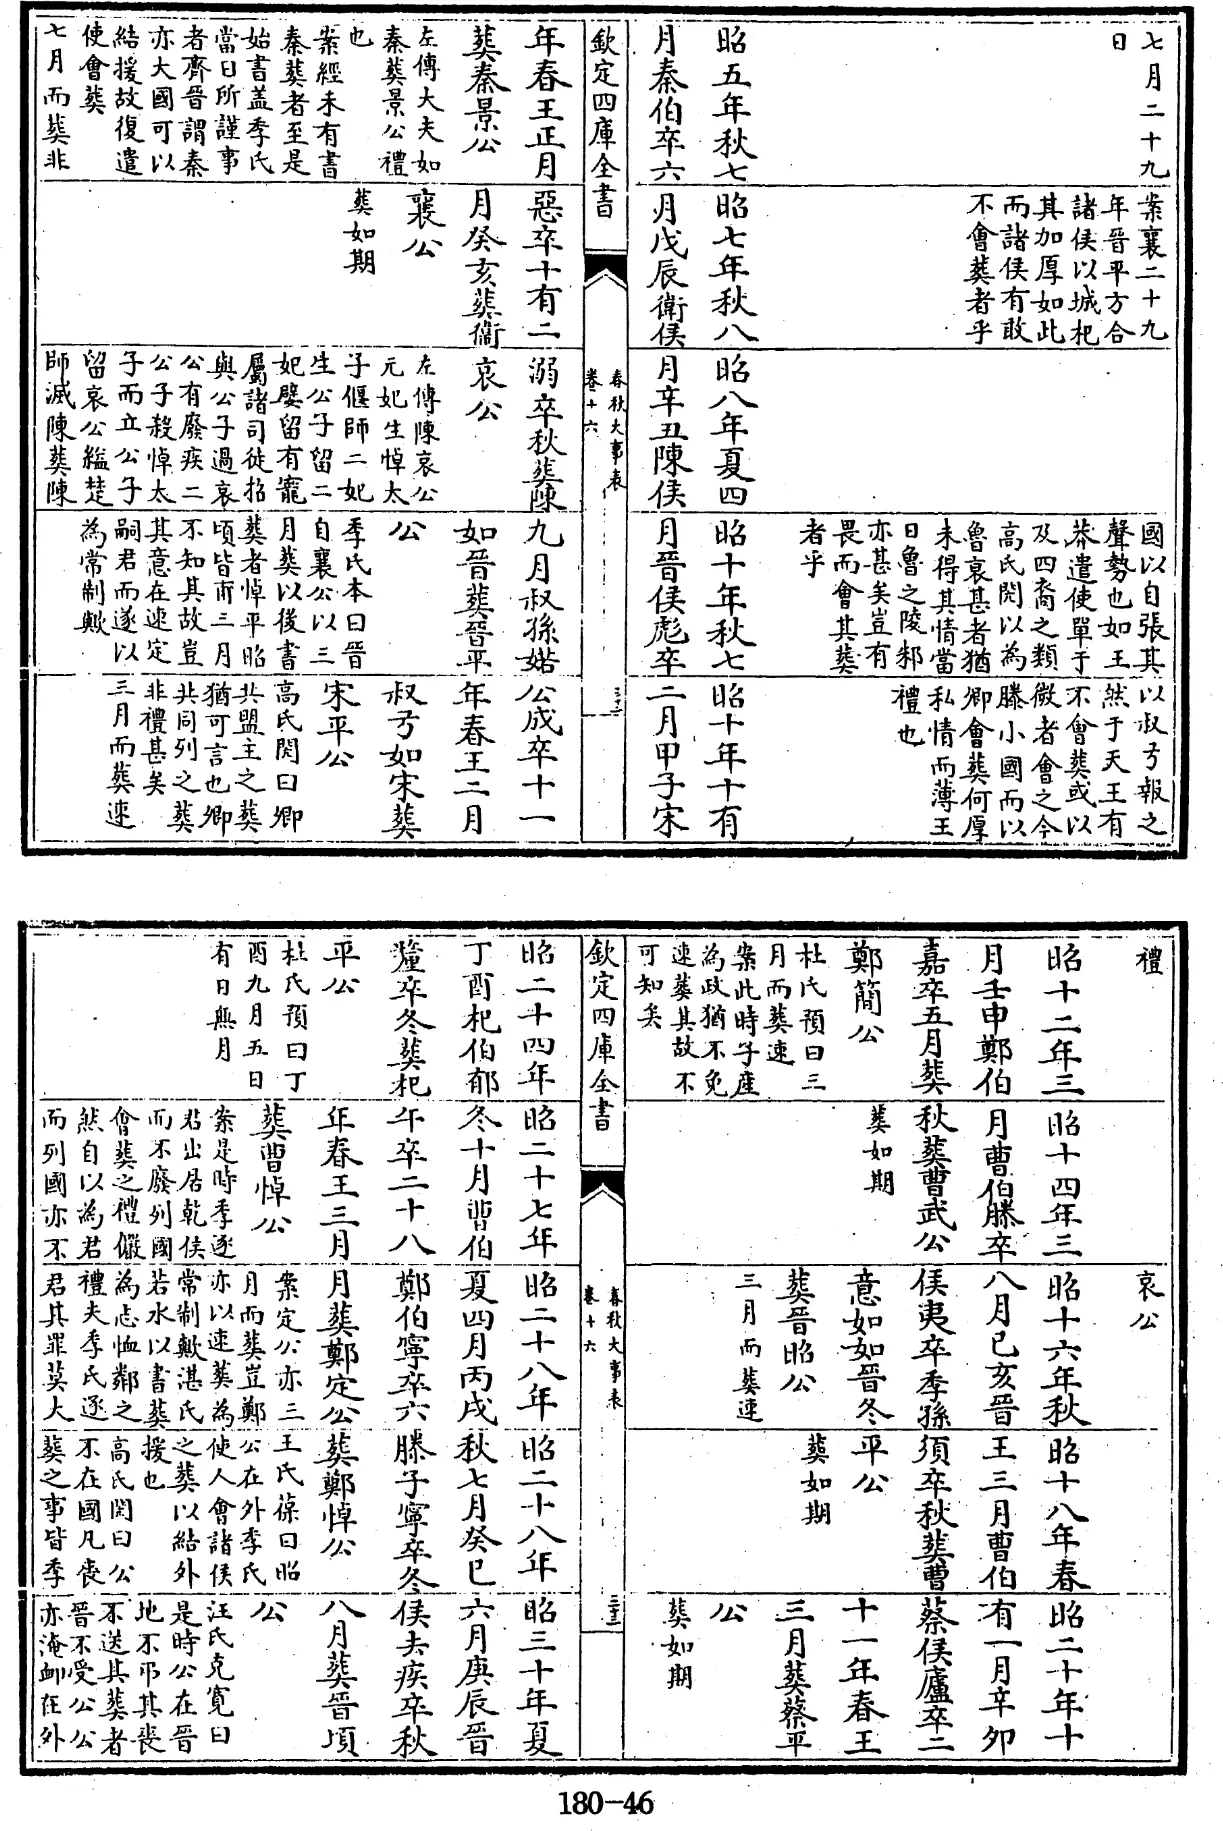 七月二十九
日
昭五年秋七
月秦伯卒六
案襄二十九
年晉平方合
諸侯以城杞
其加厚如此
而諸侯有敢
不會葬者乎
昭七年秋八
月戊辰衛侯
昭八年夏四
月辛丑陳侯
國以自張其
聲勢也如王
莽遣使單于
及四裔之類
高氏閌以為
魯哀甚者猶
未得其情當
日魯之陵邾
亦甚矣豈有
畏而會其葬
者乎
昭十年秋七
月晉侯彪卒
以叔弓報之
然于天王有
不會葬或以
微者會之今
滕小國而以
卿會葬何厚
私情而薄王
禮也
昭十年十有
二月甲子宋
欽定四庫全書
春秋大事表
卷十六
年春王正月
葬秦景公
左傳大夫如
秦葬景公禮
也
案經未有書
秦葬者至是
始書蓋季氏
當日所謹事
者齊晉謂秦
亦大國可以
結援故復遣
使會葬
七月而葬非
惡卒十有二
月癸亥葬衛
襄公
葬如期
溺卒秋葬陳
哀公
左傳陳哀公
元妃生悼太
子偃師二妃
生公子留二
妃嬖留有寵
屬諸司徒招
與公子過哀
公有廢疾二
公子殺悼太
子而立公子
留哀公縊楚
師滅陳葬陳
九月叔孫婼
如晉葬晉平
公
季氏本曰晉
自襄公以三
月葬以後書
葬者悼平昭
頃皆甫三月
不知其故豈
其意在速定
嗣君而遂以
為常制歟
公成卒十一
年春王二月
叔弓如宋葬
宋平公
高氏閌曰卿
共盟主之葬
猶可言也卿
共同列之葬
非禮甚矣
三月而葬速
禮
昭十二年三
月壬申鄭伯
嘉卒五月葬
鄭簡公
杜氏預曰三
月而葬速
案此時子產
為政猶不免
速葬其故不
可知矣
昭十四年三
月曹伯滕卒
秋葬曹武公
葬如期
哀公
昭十六年秋
八月己亥晉
侯夷卒季孫
意如如晉冬
葬晉昭公
三月而葬速
昭十八年春
王三月曹伯
須卒秋葬曹
平公
葬如期
昭二十年十
有一月辛卯
蔡侯廬卒二
十一年春王
三月葬蔡平
公
葬如期
欽定四庫全書
春秋大事表
卷十六
昭二十四年
丁酉杞伯郁
釐卒冬葬杞
平公
杜氏預曰丁
酉九月五日
有日無月
昭二十七年
冬十月曹伯
午卒二十八
年春王三月
葬曹悼公
案是時季逐
君出居乾侯
而不廢列國
會葬之禮儼
然自以為君
而列國亦不
昭二十八年
夏四月丙戌
鄭伯寧卒六
月葬鄭定公
案定公亦三
月而葬豈鄭
亦以速葬為
常制歟湛氏
若水以書葬
為志恤鄰之
禮夫季氏逐
君其罪莫大
昭二十八年
秋七月癸巳
滕子寧卒冬
葬鄭悼公
王氏葆曰昭
公在外季氏
使人會諸侯
之葬以結外
援也
高氏閌曰公
不在國凡喪
葬之事皆季
昭三十年夏
六月庚辰晉
侯去疾卒秋
八月葬晉頃
公
汪氏克寬曰
是時公在晉
地不弔其喪
不送其葬者
晉不受公公
亦淹卹在外
180-46